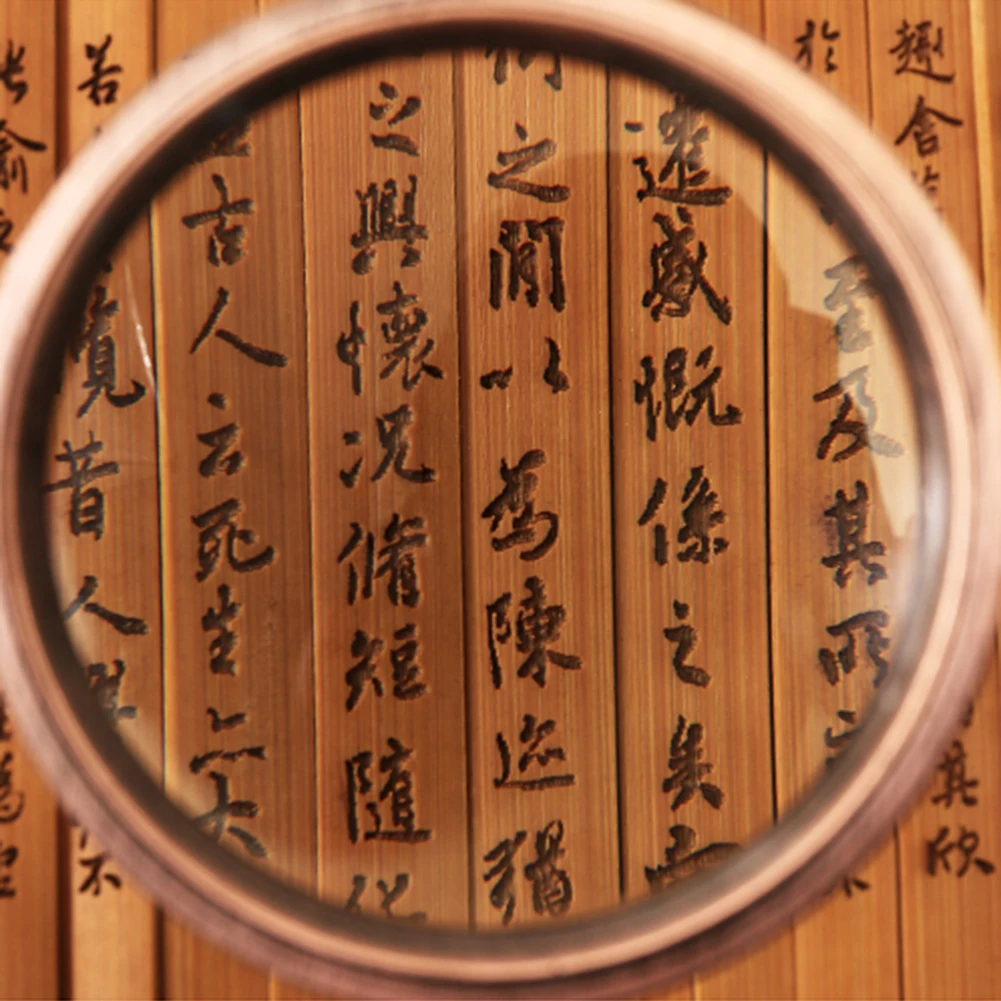 趣舍其欣
於至及其所之
遷感慨係之矣向
仰之閒以為陳迹猶
之興懷況脩短隨化
古人云死生亦大
若覽昔人興不
喻之為